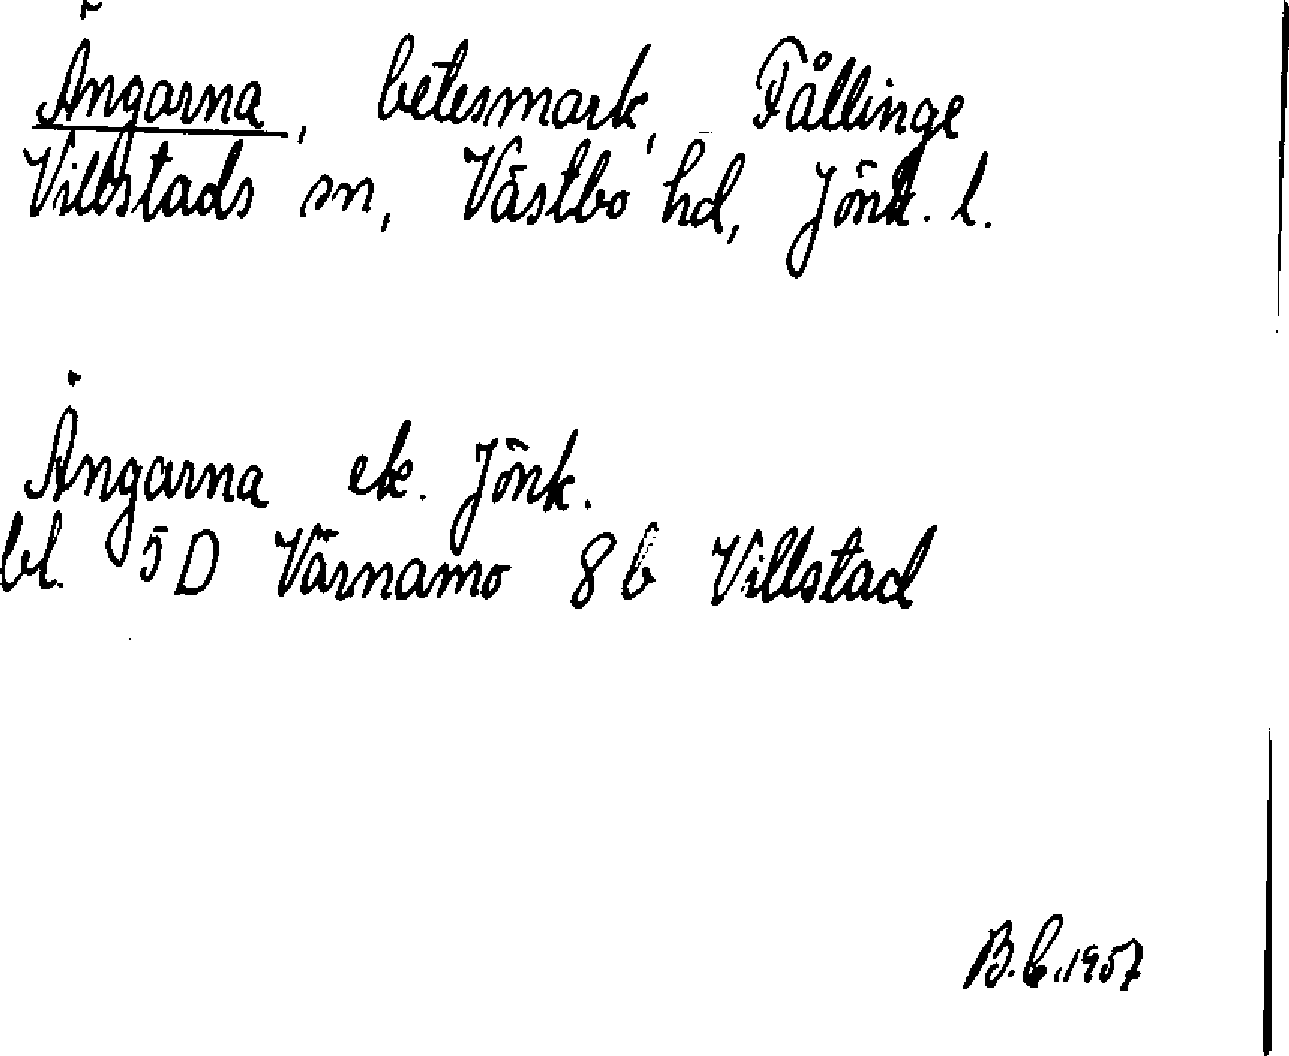 Ängarna, betesmark, Fållinge
Villstads sn, Västbo hd, Jönk. l.
Ängarna ek. Jönk.
bl. 5D Värnamo 8b Villstad
B.E. 1957